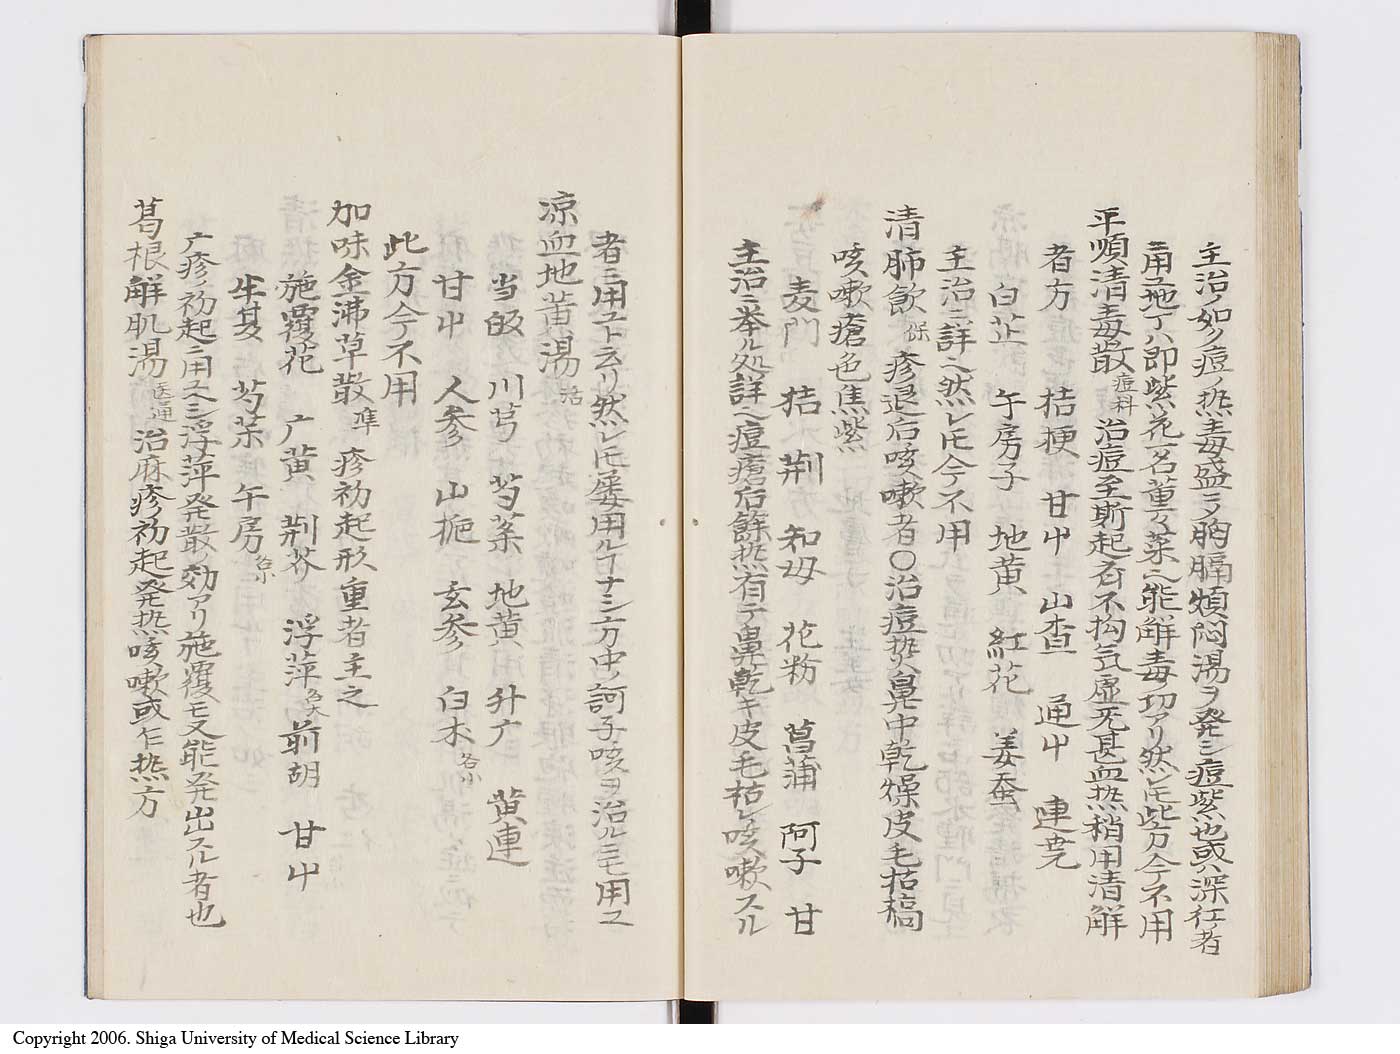 主治ノ如ク痘ノ热毒盛ニ〆胸膈煩悶湯ヲ発シ痘紫也或ハ深紅ノ者
ニ用ユ地丁ハ即紫花一名菫々菜ヘ能解毒ノ功アリ然レ𪜈此方今不用
平順清毒散 痘科 治痘至斯起否不拘気虚死甚血热稍用清解
者方 桔梗 甘艸 山査 通艸 連尭
白芷 牛房子 地黄 紅花 姜蚕
主治ニ詳ヘ然レ𪜈今不用
清肺飲 保 疹退后咳嗽者○治痘热鼻中乾燥皮毛枯稿
咳嗽瘡色焦紫
麦門 桔 荊 知母 花粉 菖蒲 阿子 甘
主治ニ挙ル処詳ヘ痘瘡后餘热有テ鼻乾キ皮毛枯レ咳嗽スル
者ニ用ユト云リ然レ𪜈屡用ルヿナシ方中ノ訶子咳ヲ治ルニモ用ユ
凉血地黄湯 活
当皈 川芎 芍薬 地黄 升广 黄連
甘艸 人参 山梔 玄参 白朮 各小
此方今不用
加味金沸草散 準 疹初起形重者主之
施覆花 广黄 荊芥 浮萍 各大 前胡 甘艸
半夏 芍薬 牛房 各小
广疹ノ初起ニ用ユヘシ浮萍発散ノ効アリ施覆モ又能発出スル者也
葛根解肌湯 医通 治麻疹初起発热咳嗽或乍热方
Copyright 2006. Shiga University of Medical Science Library